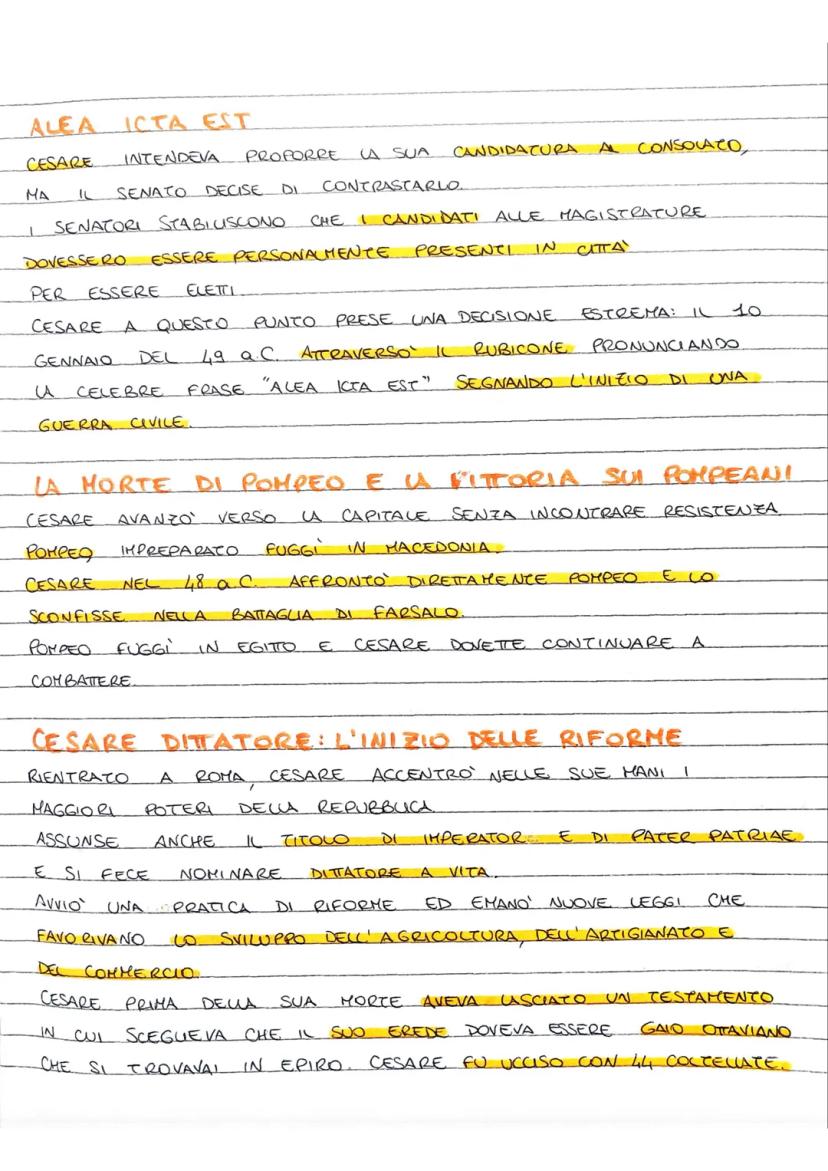 ALEA ICTA EST
CESARE INTENDEVA PROPORRE LA SUA CANDIDATURA AL CONSOLATO,
MA IL SENATO DECISE DI CONTRASTARLO.
I SENATORI STABILISCONO CHE I CANDIDATI ALLE MAGISTRATURE
DOVESSERO ESSERE PERSONALMENTE PRESENTI IN CITTA'
PER ESSERE ELETTI.
CESARE A QUESTO PUNTO PRESE UNA DECISIONE ESTREMA: IL 10
GENNAIO DEL 49 a.C. ATTRAVERSO' IL RUBICONE PRONUNCIANDO
LA CELEBRE FRASE "ALEA ICTA EST" SEGNANDO L'INIZIO DI UNA
GUERRA CIVILE.
LA MORTE DI POMPEO E LA VITTORIA SUI POMPEANI
CESARE AVANZO' VERSO LA CAPITALE SENZA INCONTRARE RESISTENZA
POMPEO IMPREPARATO FUGGI' IN MACEDONIA.
CESARE NEL 48 a.C. AFFRONTO' DIRETTAMENTE POMPEO E LO
SCONFISSE NELLA BATTAGLIA DI FARSALO.
POMPEO FUGGI' IN EGITTO E CESARE DOVETTE CONTINUARE A
COMBATTERE.
CESARE DITTATORE: L'INIZIO DELLE RIFORME
RIENTRATO A ROMA, CESARE ACCENTRO' NELLE SUE MANI I
MAGGIORI POTERI DELLA REPUBBLICA.
ASSUNSE ANCHE IL TITOLO DI IMPERATOR E DI PATER PATRIAE
E SI FECE NOMINARE DITTATORE A VITA.
AVVIO' UNA PRATICA DI RIFORME ED EMANO' NUOVE LEGGI CHE
FAVORIVANO LO SVILUPPO DELL'AGRICOLTURA, DELL'ARTIGIANATO E
DEL COMMERCIO.
CESARE PRIMA DELLA SUA MORTE AVEVA LASCIATO UN TESTAMENTO
IN CUI SCEGLIEVA CHE IL SUO EREDE DOVEVA ESSERE GAIO OTTAVIANO
CHE SI TROVAVAI IN EPIRO. CESARE FU UCCISO CON 44 COLTELLATE.